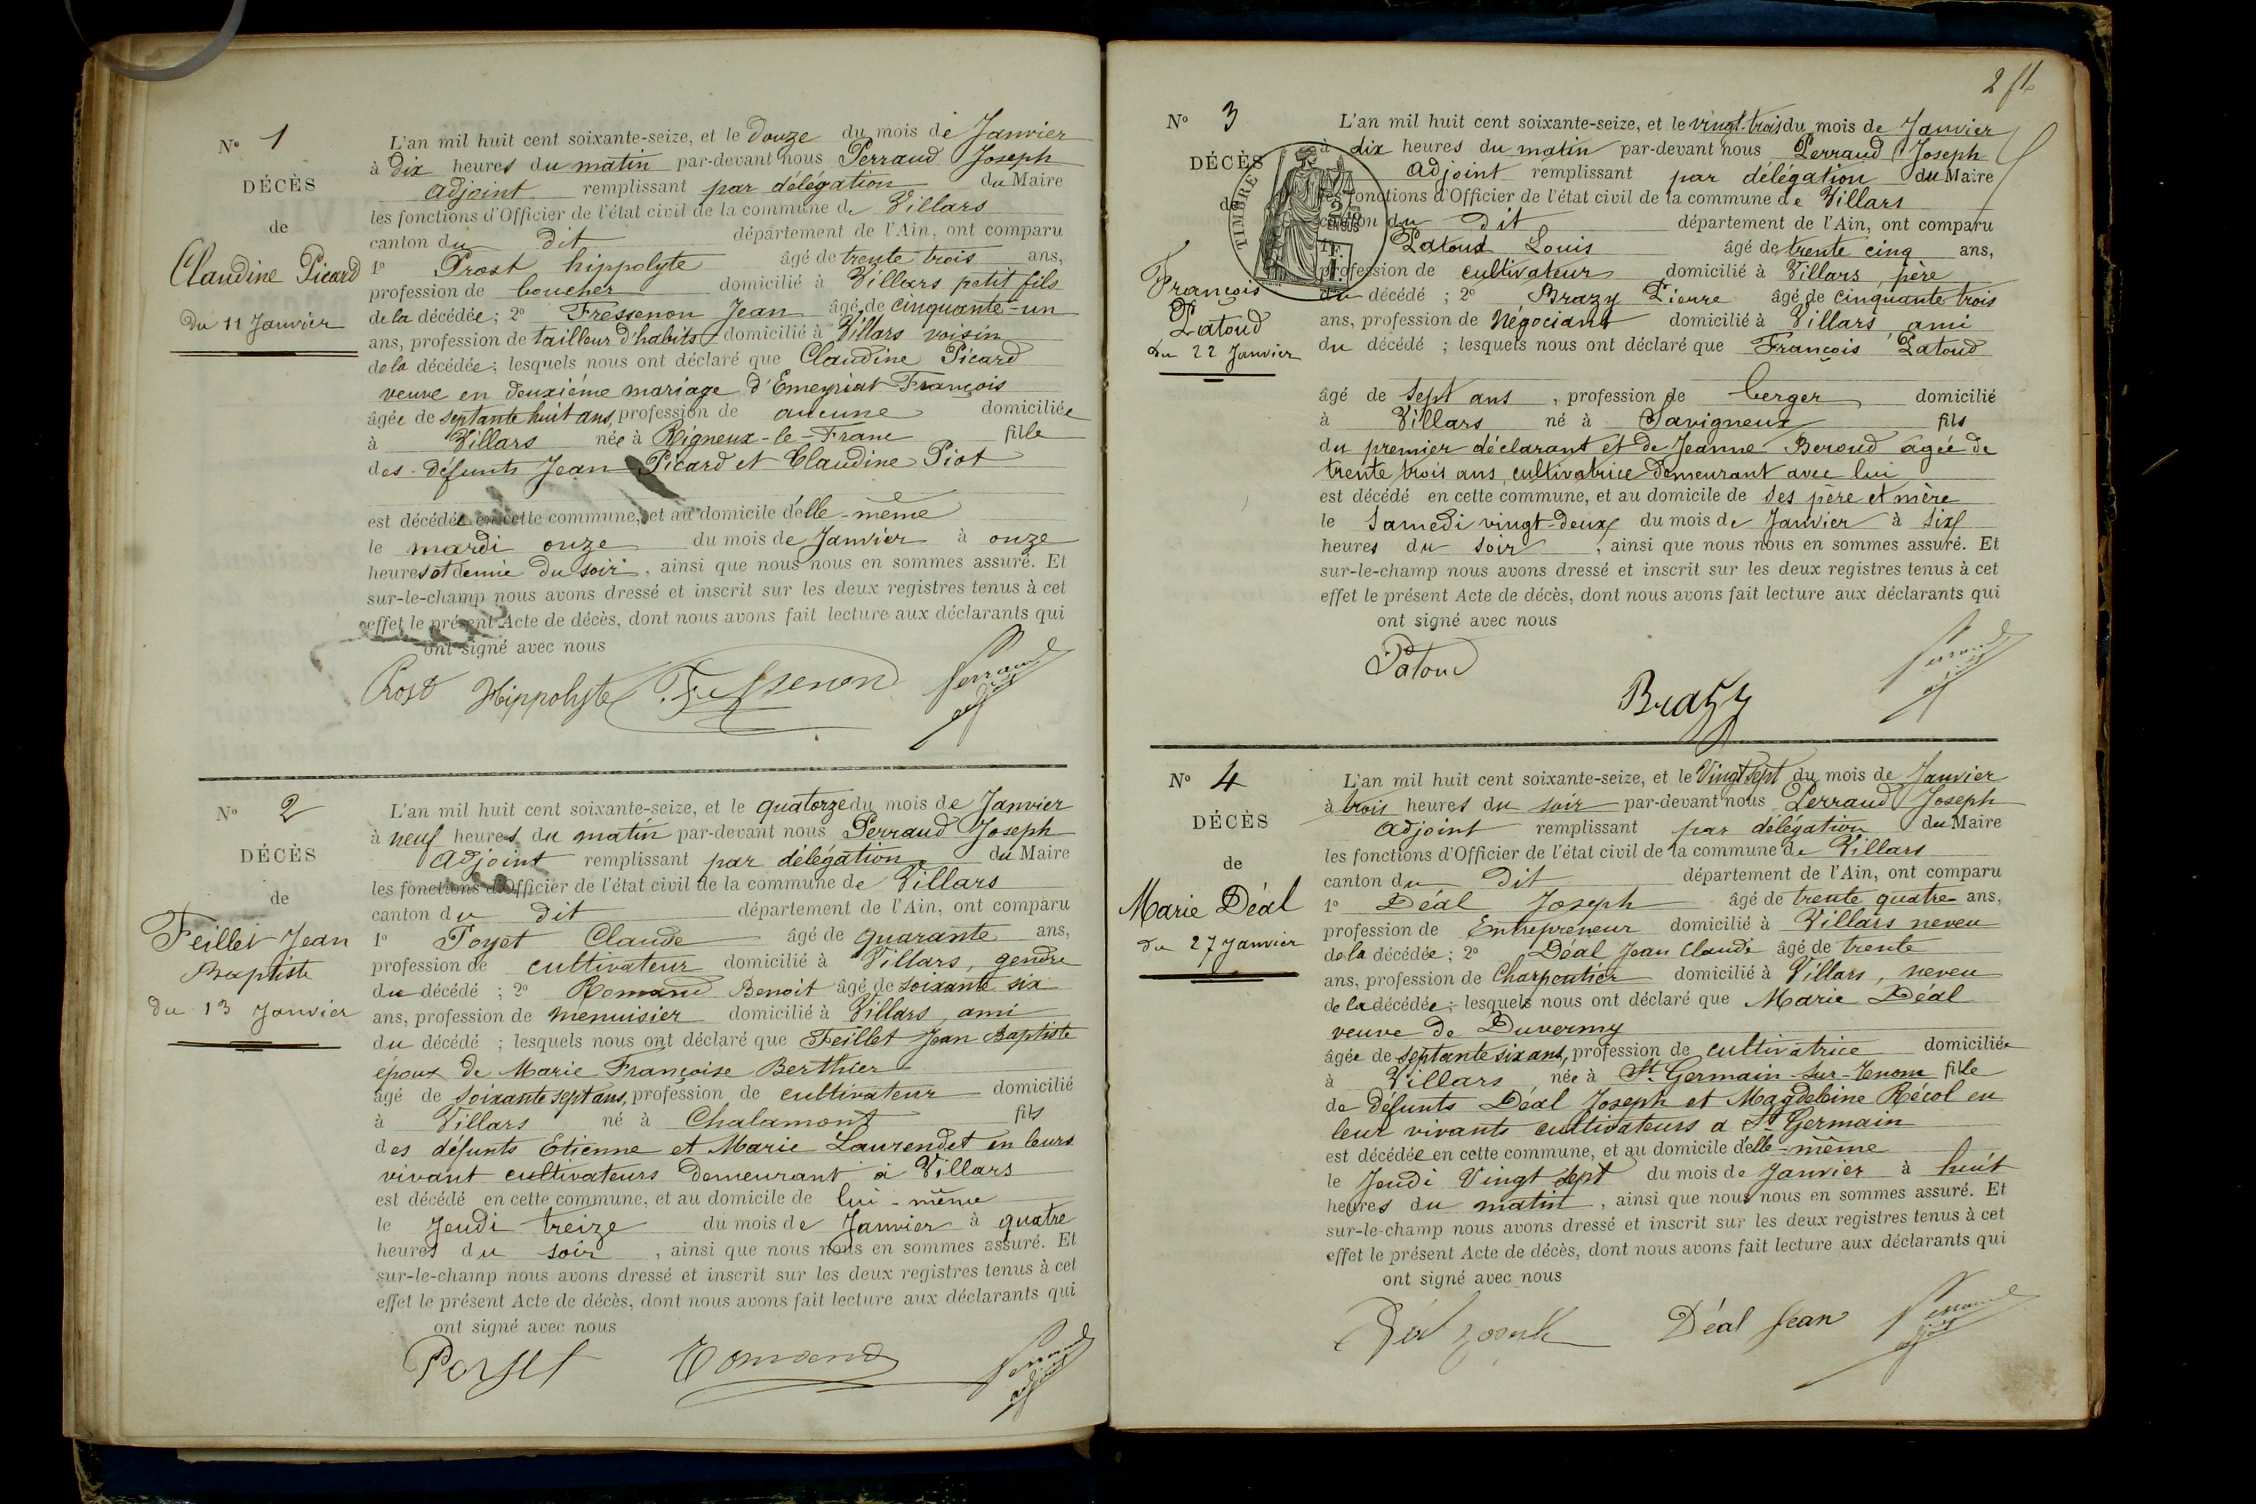 Nº 1
DÉCÈS
de
Claudine Picard
du 11 Janvier
L'an mil huit cent soixante-seize, et le douze du mois de Janvier
à dix heures du matin par-devant nous Perraud Joseph
adjoint remplissant par délégation du Maire
les fonctions d'Officier de l'état civil de la commune de Villars
canton du dit département de l'Ain, ont comparu
1º Prost hippolyte âgé de trente trois ans,
profession de boucher domicilié à Villars petit fils
de la décédée ; 2º Fressenon Jean âgé de cinquante-un
ans, profession de tailleur d'habits domicilié à Villars voisin
de la décédée ; lesquels nous ont déclaré que Claudine Picard
veuve en deuxième mariage d'Emeyriat François
âgée de septante huit ans, profession de aucune domiciliée
à Villars née à Rigneux-le-Franc fille
des défunts Jean Picard et Claudine Piot
est décédée en cette commune, et au domicile d'elle-même
le mardi onze du mois de Janvier à onze
heures et demie du soir, ainsi que nous nous en sommes assuré. Et
sur-le-champ nous avons dressé et inscrit sur les deux registres tenus à cet
effet le présent Acte de décès, dont nous avons fait lecture aux déclarants qui
ont signé avec nous
Prost Hippolyte Fressenon Perraud adj
Nº 2
DÉCÈS
de
Feillet Jean
Baptiste
du 13 Janvier
L'an mil huit cent soixante-seize, et le quatorze du mois de Janvier
à neuf heures du matin par-devant nous Perraud Joseph
adjoint remplissant par délégation du Maire
les fonctions d'Officier de l'état civil de la commune de Villars
canton du dit département de l'Ain, ont comparu
1º Poyet Claude âgé de quarante ans,
profession de cultivateur domicilié à Villars, gendre
du décédé ; 2º Romand Benoit âgé de soixante six
ans, profession de menuisier domicilié à Villars, ami
du décédé ; lesquels nous ont déclaré que Feillet Jean Baptiste
époux de Marie Françoise Berthier
âgé de soixante sept ans, profession de cultivateur domicilié
à Villars né à Chalamont fils
des défunts Etienne et Marie Laurendet en leurs
vivant cultivateurs demeurant à Villars
est décédé en cette commune, et au domicile de lui-même
le Jeudi treize du mois de Janvier à quatre
heures du soir, ainsi que nous nous en sommes assuré. Et
sur-le-champ nous avons dressé et inscrit sur les deux registres tenus à cet
effet le présent Acte de décès, dont nous avons fait lecture aux déclarants qui
ont signé avec nous
Poyet Romand Perraud adj
2
Nº 3
DÉCÈS
de
François
Patoud
du 22 Janvier
TIMBRE
L'an mil huit cent soixante-seize, et le vingt-trois du mois de Janvier
à dix heures du matin par-devant nous Perraud Joseph
adjoint remplissant par délégation du Maire
les fonctions d'Officier de l'état civil de la commune de Villars
canton du dit département de l'Ain, ont comparu
1º Patoud Louis âgé de trente cinq ans,
profession de cultivateur domicilié à Villars père
du décédé ; 2º Brazy Pierre âgé de cinquante trois
ans, profession de Négociant domicilié à Villars ami
du décédé ; lesquels nous ont déclaré que François Patoud
âgé de sept ans, profession de berger domicilié
à Villars né à Savigneux fils
du premier déclarant et de Jeanne Beroud agée de
trente trois ans, cultivatrice demeurant avec lui
est décédé en cette commune, et au domicile de ses père et mère
le Samedi vingt-deux du mois de Janvier à six
heures du soir, ainsi que nous nous en sommes assuré. Et
sur-le-champ nous avons dressé et inscrit sur les deux registres tenus à cet
effet le présent Acte de décès, dont nous avons fait lecture aux déclarants qui
ont signé avec nous
Patoud Brazy Perraud adj
Nº 4
DÉCÈS
de
Marie Déal
du 27 Janvier
L'an mil huit cent soixante-seize, et le Vingt sept du mois de Janvier
à trois heures du soir par-devant nous Perraud Joseph
adjoint remplissant par délégation du Maire
les fonctions d'Officier de l'état civil de la commune de Villars
canton du dit département de l'Ain, ont comparu
1º Déal Joseph âgé de trente quatre ans,
profession de Entrepreneur domicilié à Villars neveu
de la décédée ; 2º Déal Jean Claude âgé de trente
ans, profession de Charpentier domicilié à Villars, neveu
de la décédée ; lesquels nous ont déclaré que Marie Déal
veuve de Duvermy
âgée de septante six ans, profession de cultivatrice domiciliée
à Villars née à St. Germain-sur-Renom fille
de défunts Déal Joseph et Magdeleine Récol en
leur vivants cultivateurs a St Germain
est décédée en cette commune, et au domicile d'elle-même
le Jeudi Vingt sept du mois de Janvier à huit
heures du matin, ainsi que nous nous en sommes assuré. Et
sur-le-champ nous avons dressé et inscrit sur les deux registres tenus à cet
effet le présent Acte de décès, dont nous avons fait lecture aux déclarants qui
ont signé avec nous
Déal Joseph Déal Jean Perraud adj